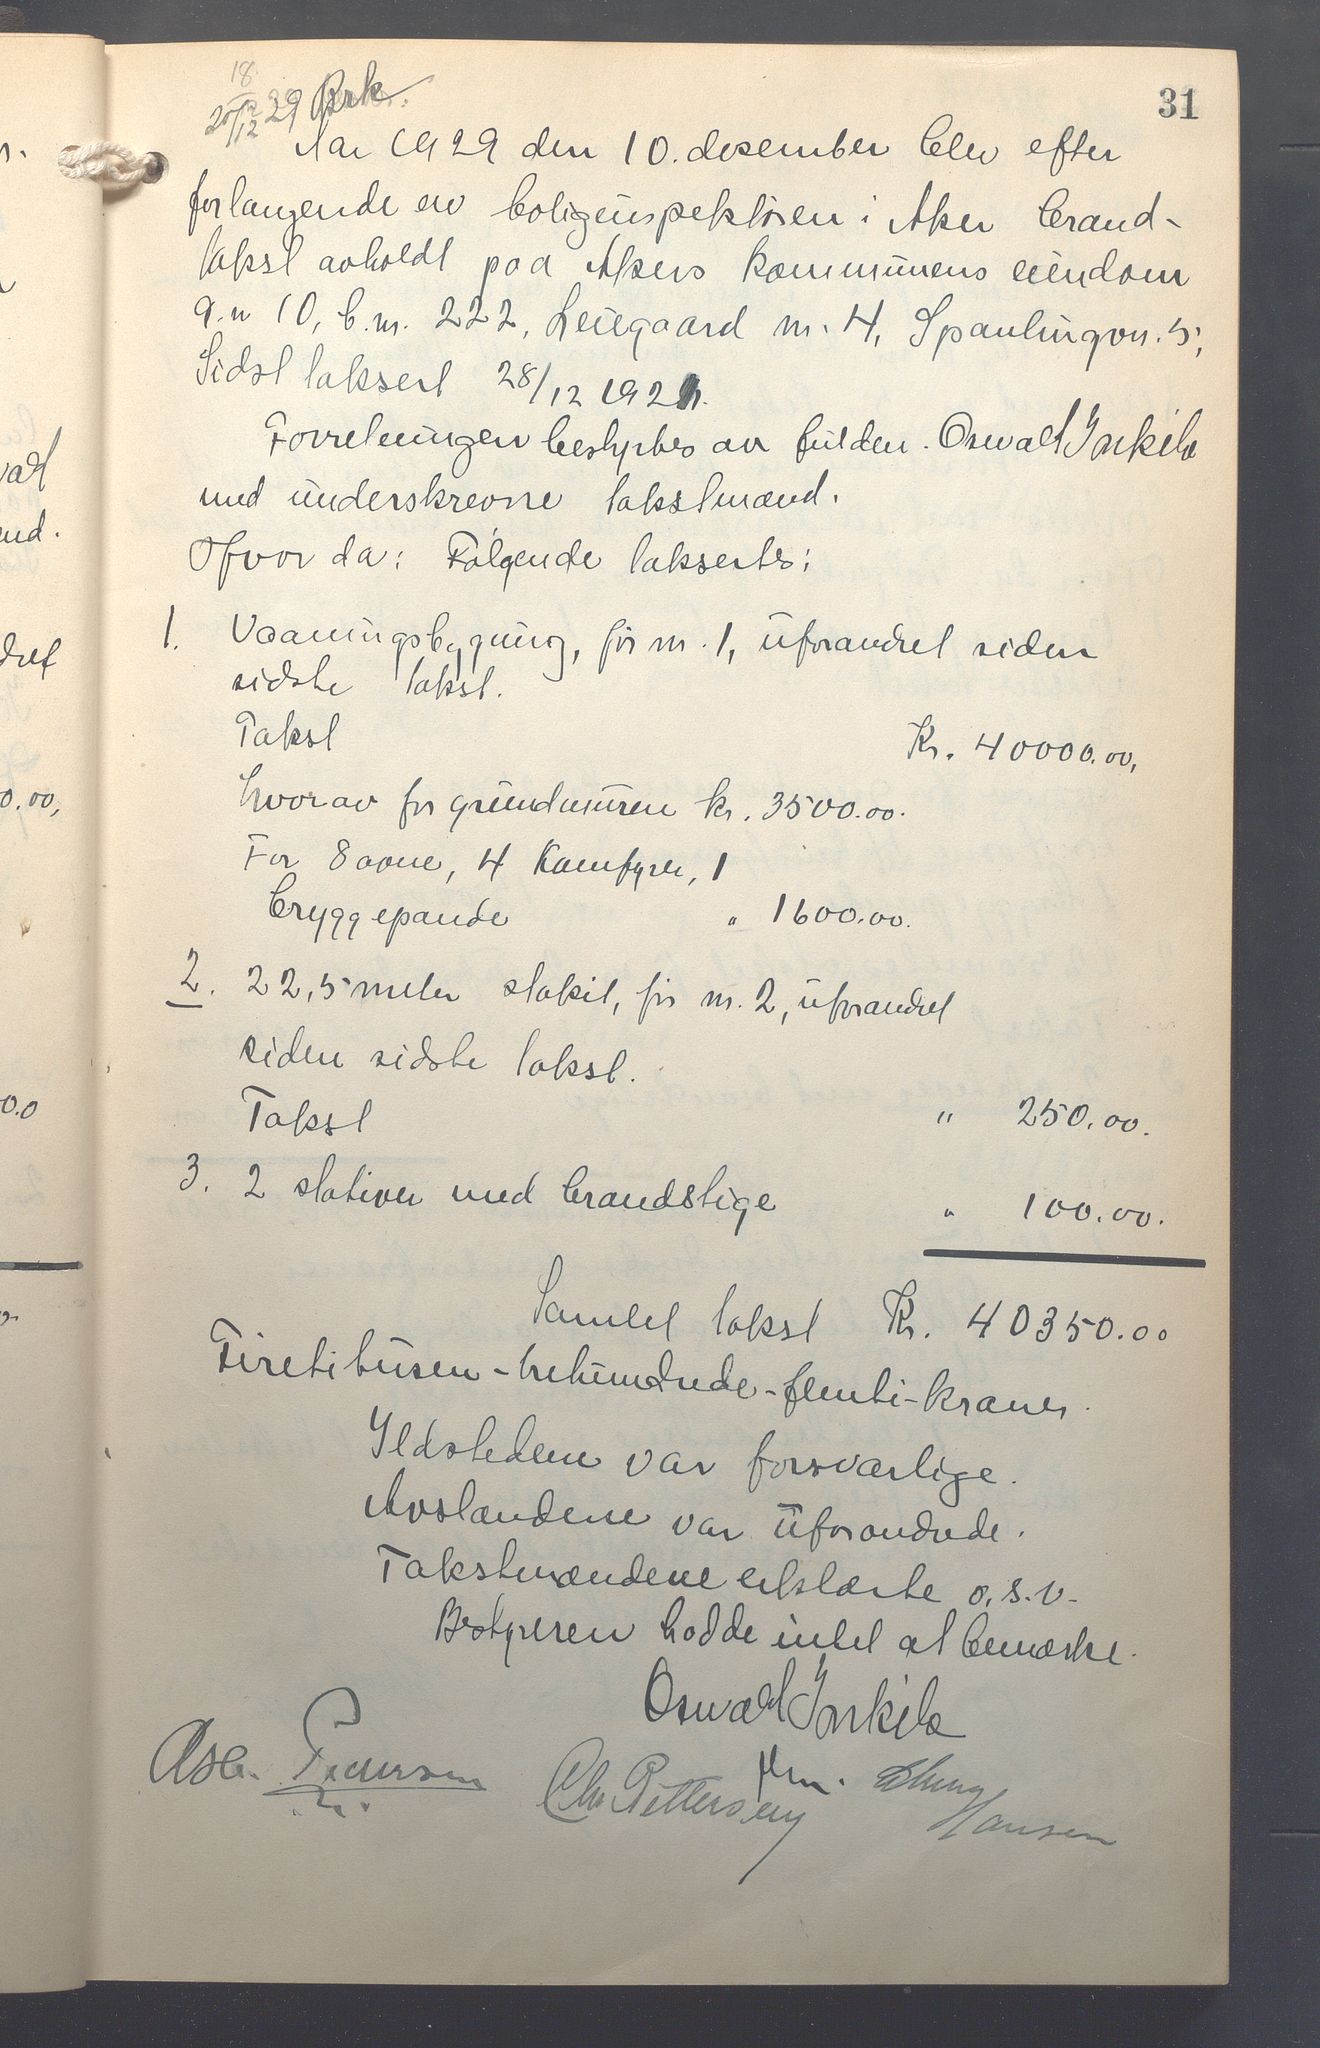 31
18/12 29 Brk.
Aar 1929 den 10. desember blev efter
forlangende av boliginspektøren i Aker brand-
takst avholdt paa Akers kommunens eiendom
g.n 10, b.nr. 222, Leiegaard nr. 4, Spaulingvn. 5,
Sidst taksert 28/12 192
Forretningen bestyrtes av fuldm. Oswald Inkilæ
med underskrevne takstmænd.
Hvor da: Følgende taksertes:
1. Vaaningsbygning, før nr. 1, uforandret siden
sidste takst.
Takst Kr. 40000.00,
hvorav for grundmuren kr. 3500.00.
For 8 ovne, 4 Komfyrer, 1
bryggepande " 1600.00.
2. 22,5 meter stakit, før nr. 2, uforandret
siden sidste takst.
Takst " 250.00.
3. 2 stativer med brandstige " 100.00.
Samlet takst Kr. 40350.00
Firetitusen-trehundrede-femti-kroner.
Ildstedene var forsvarlige.
Avstandene var uforandrede.
Takstmændene erklærte o.s.v.
Bestyreren hadde intet at bemærke.
Oswald Inkilæ
Pedersen Chr Pettersen Hansen